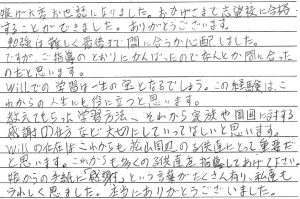 娘が大変お世話になりました。おかげさまで志望校に合格
することができました。ありがとうございます。
勉強は難しく最後まで間に合うか心配しました。
ですが、ご指導のとおりにがんばったのでなんとか間に合った
のだと思います。
Willでの学習は一生の宝となるでしょう。この経験は、こ
れからの人生にも役に立つと思います。
教えてもらった学習方法、それから家族や周囲に対する
感謝の仕方など大切にしていってほしいと思います。
Willの存在はこれからも松山周辺の子供達にとって重要だ
と思います。これからも多くの子供達を指導してあげて下さい。
娘からの手紙に「感謝」という言葉がたくさん有り、私達も
うれしく思いました。本当にありがとうございました。